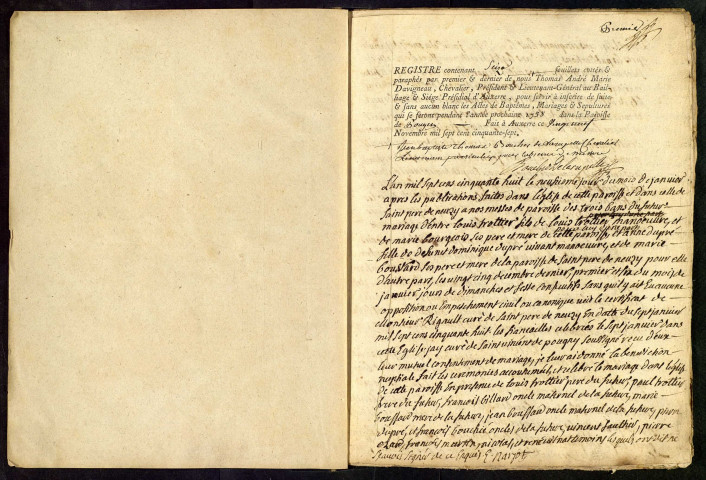 Premier
REGISTRE contenant Seize feuillets cottés &
paraphés par premier & dernier de nous Thomas André Marie
Davigneau, Chevalier, Président & Lieutenant-Général au Bail-
liage & Siége Présidial d'Auxerre, pour servir à inscrire de suite
& sans aucun blanc les Actes de Baptêmes, Mariages & Sepultures
qui se feront pendant l'année prochaine 1758 dans la Paroisse
de Pougny Fait à Auxerre ce
Novembre mil sept cent cinquante-sept.
L'an mil sept cens cinquante huit le neufvieme jour du mois de janvier
apres les publications faites dans l'eglise de cette paroisse et dans celle de
saint pere de neuzy a nos messes de paroisse des trois bans du futur
mariage d'entre louis trottier fils de louis trottier manoeuvre, et
de marie bourgeois ses pere et mere de cette paroisse et anne dupré
fille de defunt dominique dupré vivant manoeuvre, et de marie
boussard ses pere et mere de la paroisse de saint pere de neuzy pour elle
d'autre part, les vingt cinq decembre dernier, premier et six du mois de
janvier jours de dimanches et feste consecutifs sans qu'il y ait eu aucune
opposition ou empechement civil ou canonique veu le certificat de
Monsieur Rigault curé de saint pere de neuzy en datte du sept janvier
mil sept cens cinquante huit les fiancailles celebrées le sept janvier dans
cette eglise, jay curé de saint vincent de pougny soussigné receu d'eux
leur mutuel consentement de mariage, je leur ai donné la benediction
nuptiale fait les ceremonies accoutumées, et celebré le mariage dans l'eglise
de cette paroisse en presence de louis trottier pere du futur, paul trottier
frere du futur, francois billard oncle maternel de la future, marie
boussard mere de la future, jean boussard oncle maternel de la future, pierre
dupré, et francois bouchié oncles de la future, vincent gaulthier, pierre
francois martin, nicolas et temoins lesquels ont dit ne
scavoir signer de ce enquis